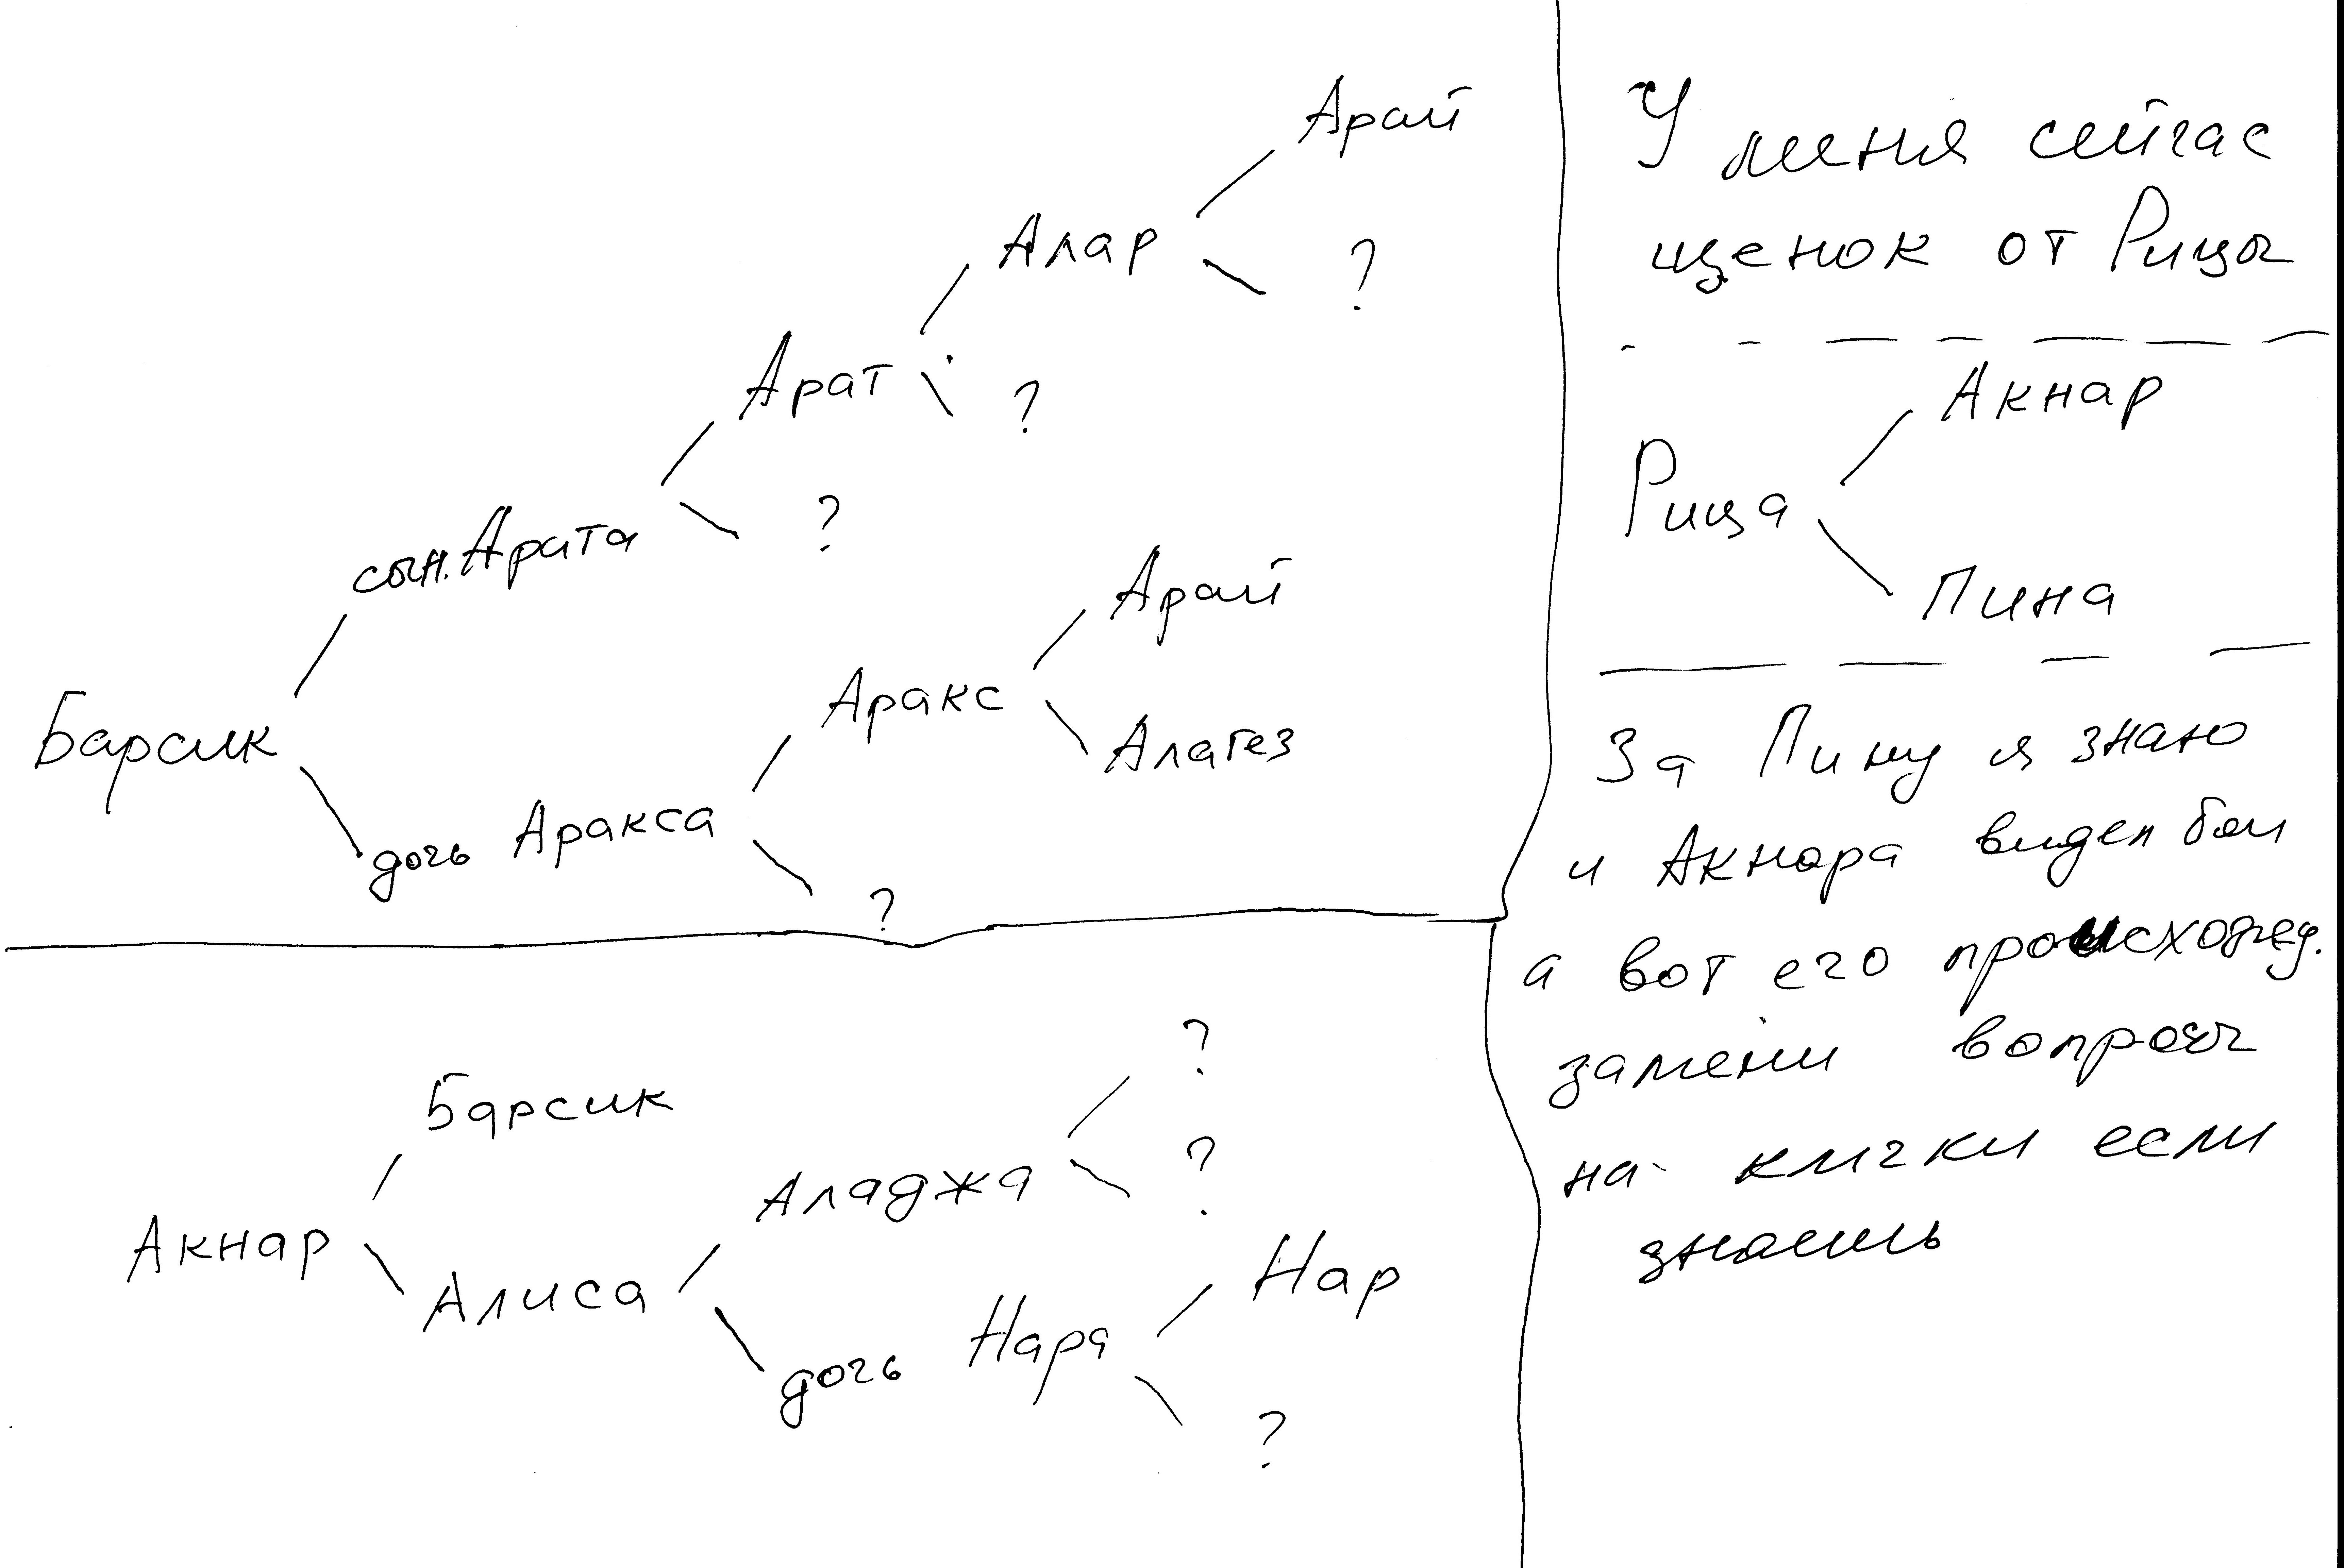 Арай
Алар
?
Арат
?
сын. Арата
?
Арай
Аракс
Барсик
Алагез
дочь Аракса
?
?
Барсик
Аладжа
?
Акнар
Алиса
Нар
дочь Нара
?
У меня сейчас
щенок от Рицы
Акнар
Рица
Пина
За Пину я знаю
и Акнара видел бои
а вот его происхожд.
замени вопросы
на клички если
знаешь